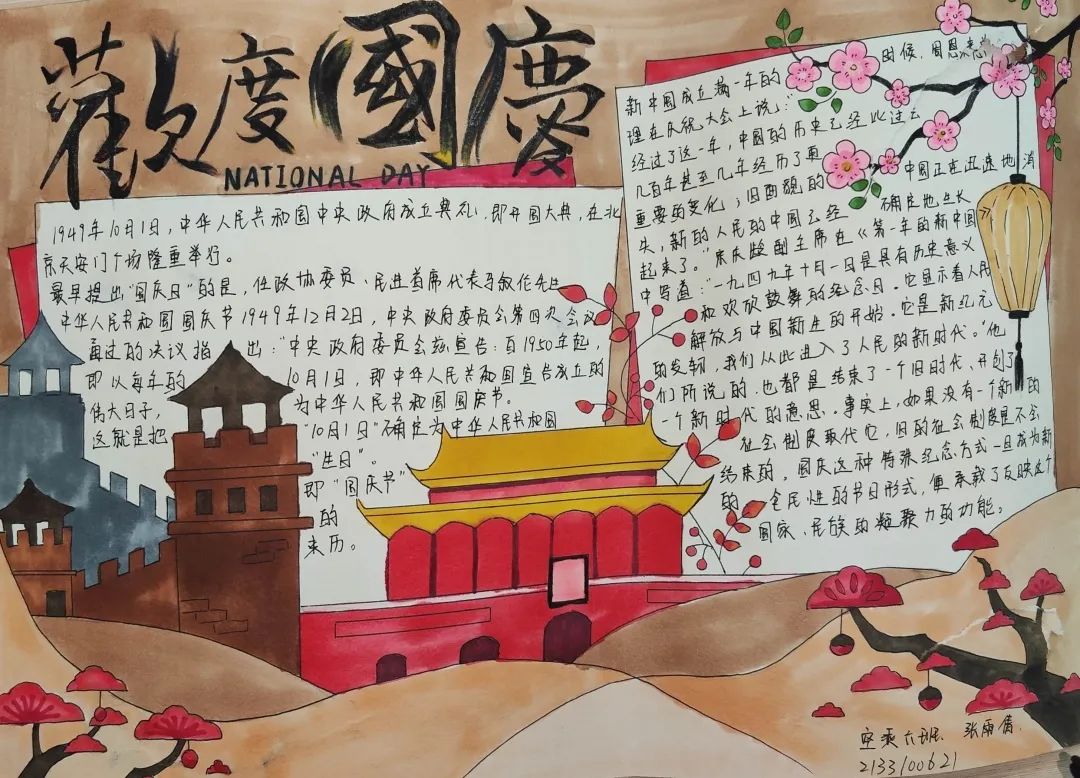 歡度國慶
NATIONAL DAY
1949年10月1日，中华人民共和国中央政府成立典礼，即开国大典，在北
京天安门广场隆重举行。
最早提出“国庆日”的是，任政协委员、民进首席代表马叙伦先生
中华人民共和国国庆节1949年12月2日，中央政府委员会第四次会议
通过的决议指出：“中央政府委员会兹宣告：自1950年起，
即以每年的10月1日，即中华人民共和国宣告成立的
伟大日子，为中华人民共和国国庆节。
这就是把“10月1日”确定为中华人民共和国
“生日”。
即“国庆节”
的
来历。
新中国成立满一年的时候，周恩来总
理在庆祝大会上说：
经过了这一年，中国的历史已经比过去
几百年甚至几年经历了更
重要的变化；旧的中国正在迅速地消
失，新的人民的中国已经确定地生长
起来了。”宋庆龄副主席在《第一年的新中国
中写道：“一九四九年十月一日是具有历史意义
和欢欣鼓舞的纪念日。它显示着人民
解放与中国新生的开始。它是新纪元
的发轫，我们从此进入了人民的新时代。”他
们所说的，也都是结束了一个旧时代、开创了
一个新时代的意思。事实上，如果没有一个新的
社会制度取代它，旧的社会制度是不会
结束的，国庆这种特殊纪念方式一旦成为新
的、全民性的节日形式，便承载了反映这个
国家、民族的凝聚力的功能。
空乘六班、张雨倩
2133100621